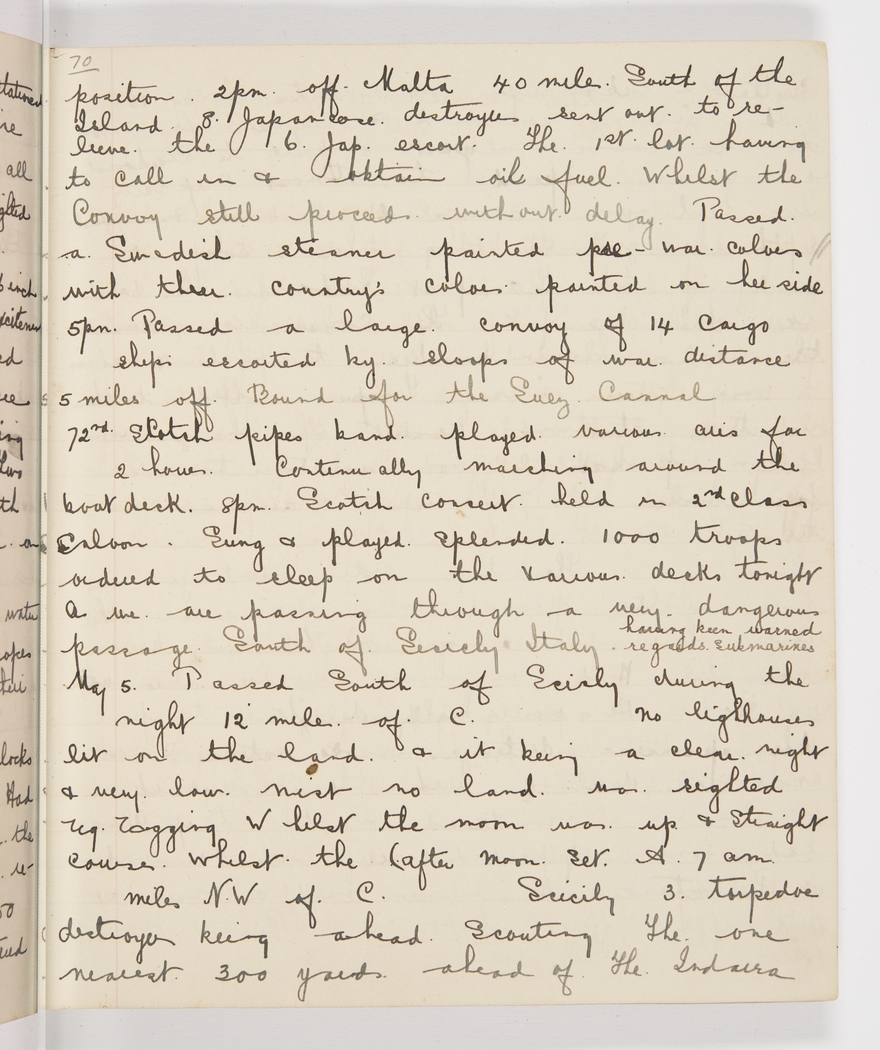 70
position. 2pm. off. Malta 40 mile. South of the
Island. 8. Japanese. destroyers sent out. to re-
lieve. the 6. Jap. escort. The. 1st. lot. having
to call in & obtain oil fuel. Whilst the
Convoy still proceeds. without delay. Passed.
a. Swedish steamer painted pre-war. colors
with their. country's colors. painted on her side
5pm. Passed a large. convoy of 14 Cargo
ships escorted by. sloops of war. distance
5 miles off. Bound for the Suez. Cannal
72nd. Scotch pipes band. played. various. airs for
2 hours. Continually marching around the
boat deck. 8pm. Scotch concert. held in 2nd Class
Saloon. Sung & played. Splended. 1000 troops
ordered to sleep on the various. decks tonight
as we. are passing through a very. dangerous
passage. South of. Sicily Italy. having been warned
regards. Submarines
May 5. Passed South of Scisly during the
night 12 mile. of. C. no lighhouses
lit on the land. & it being a clear. night
& very. low. mist no land. was. sighted
Zig. Zagging Whilst the moon was. up & Straight
course. whilst. the (after moon. Set. A. 7 am.
miles N.W of. C. Scicily 3. torpedoe
destroyers being ahead. Scouting The. one
nearest. 300 yards. ahead of. The. Indarra